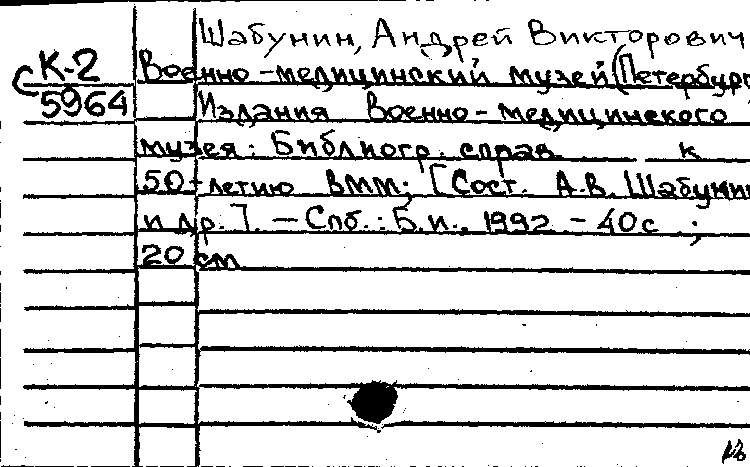 Шабунин, Андрей Викторович
К-2
Военно-медицинский музей (Петербург
5964
Издания Военно-медицинского
музея: Библиогр. справ. к
50-летию ВММ; [Сост. А.В. Шабунин
и др.]. – Спб.: Б.и., 1992 – 40с.;
20 см